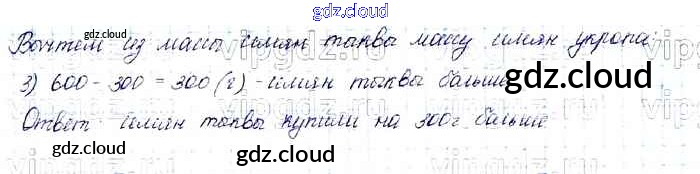 gdz.cloud
Вычтем из массы семян тыквы массу семян укропа:
gdz.cloud
3) 600 - 300 = 300 (г) - семян тыквы больше
gdz.cloud
Ответ: семян тыквы купили на 300г больше
gdz.cloud
gdz.cloud